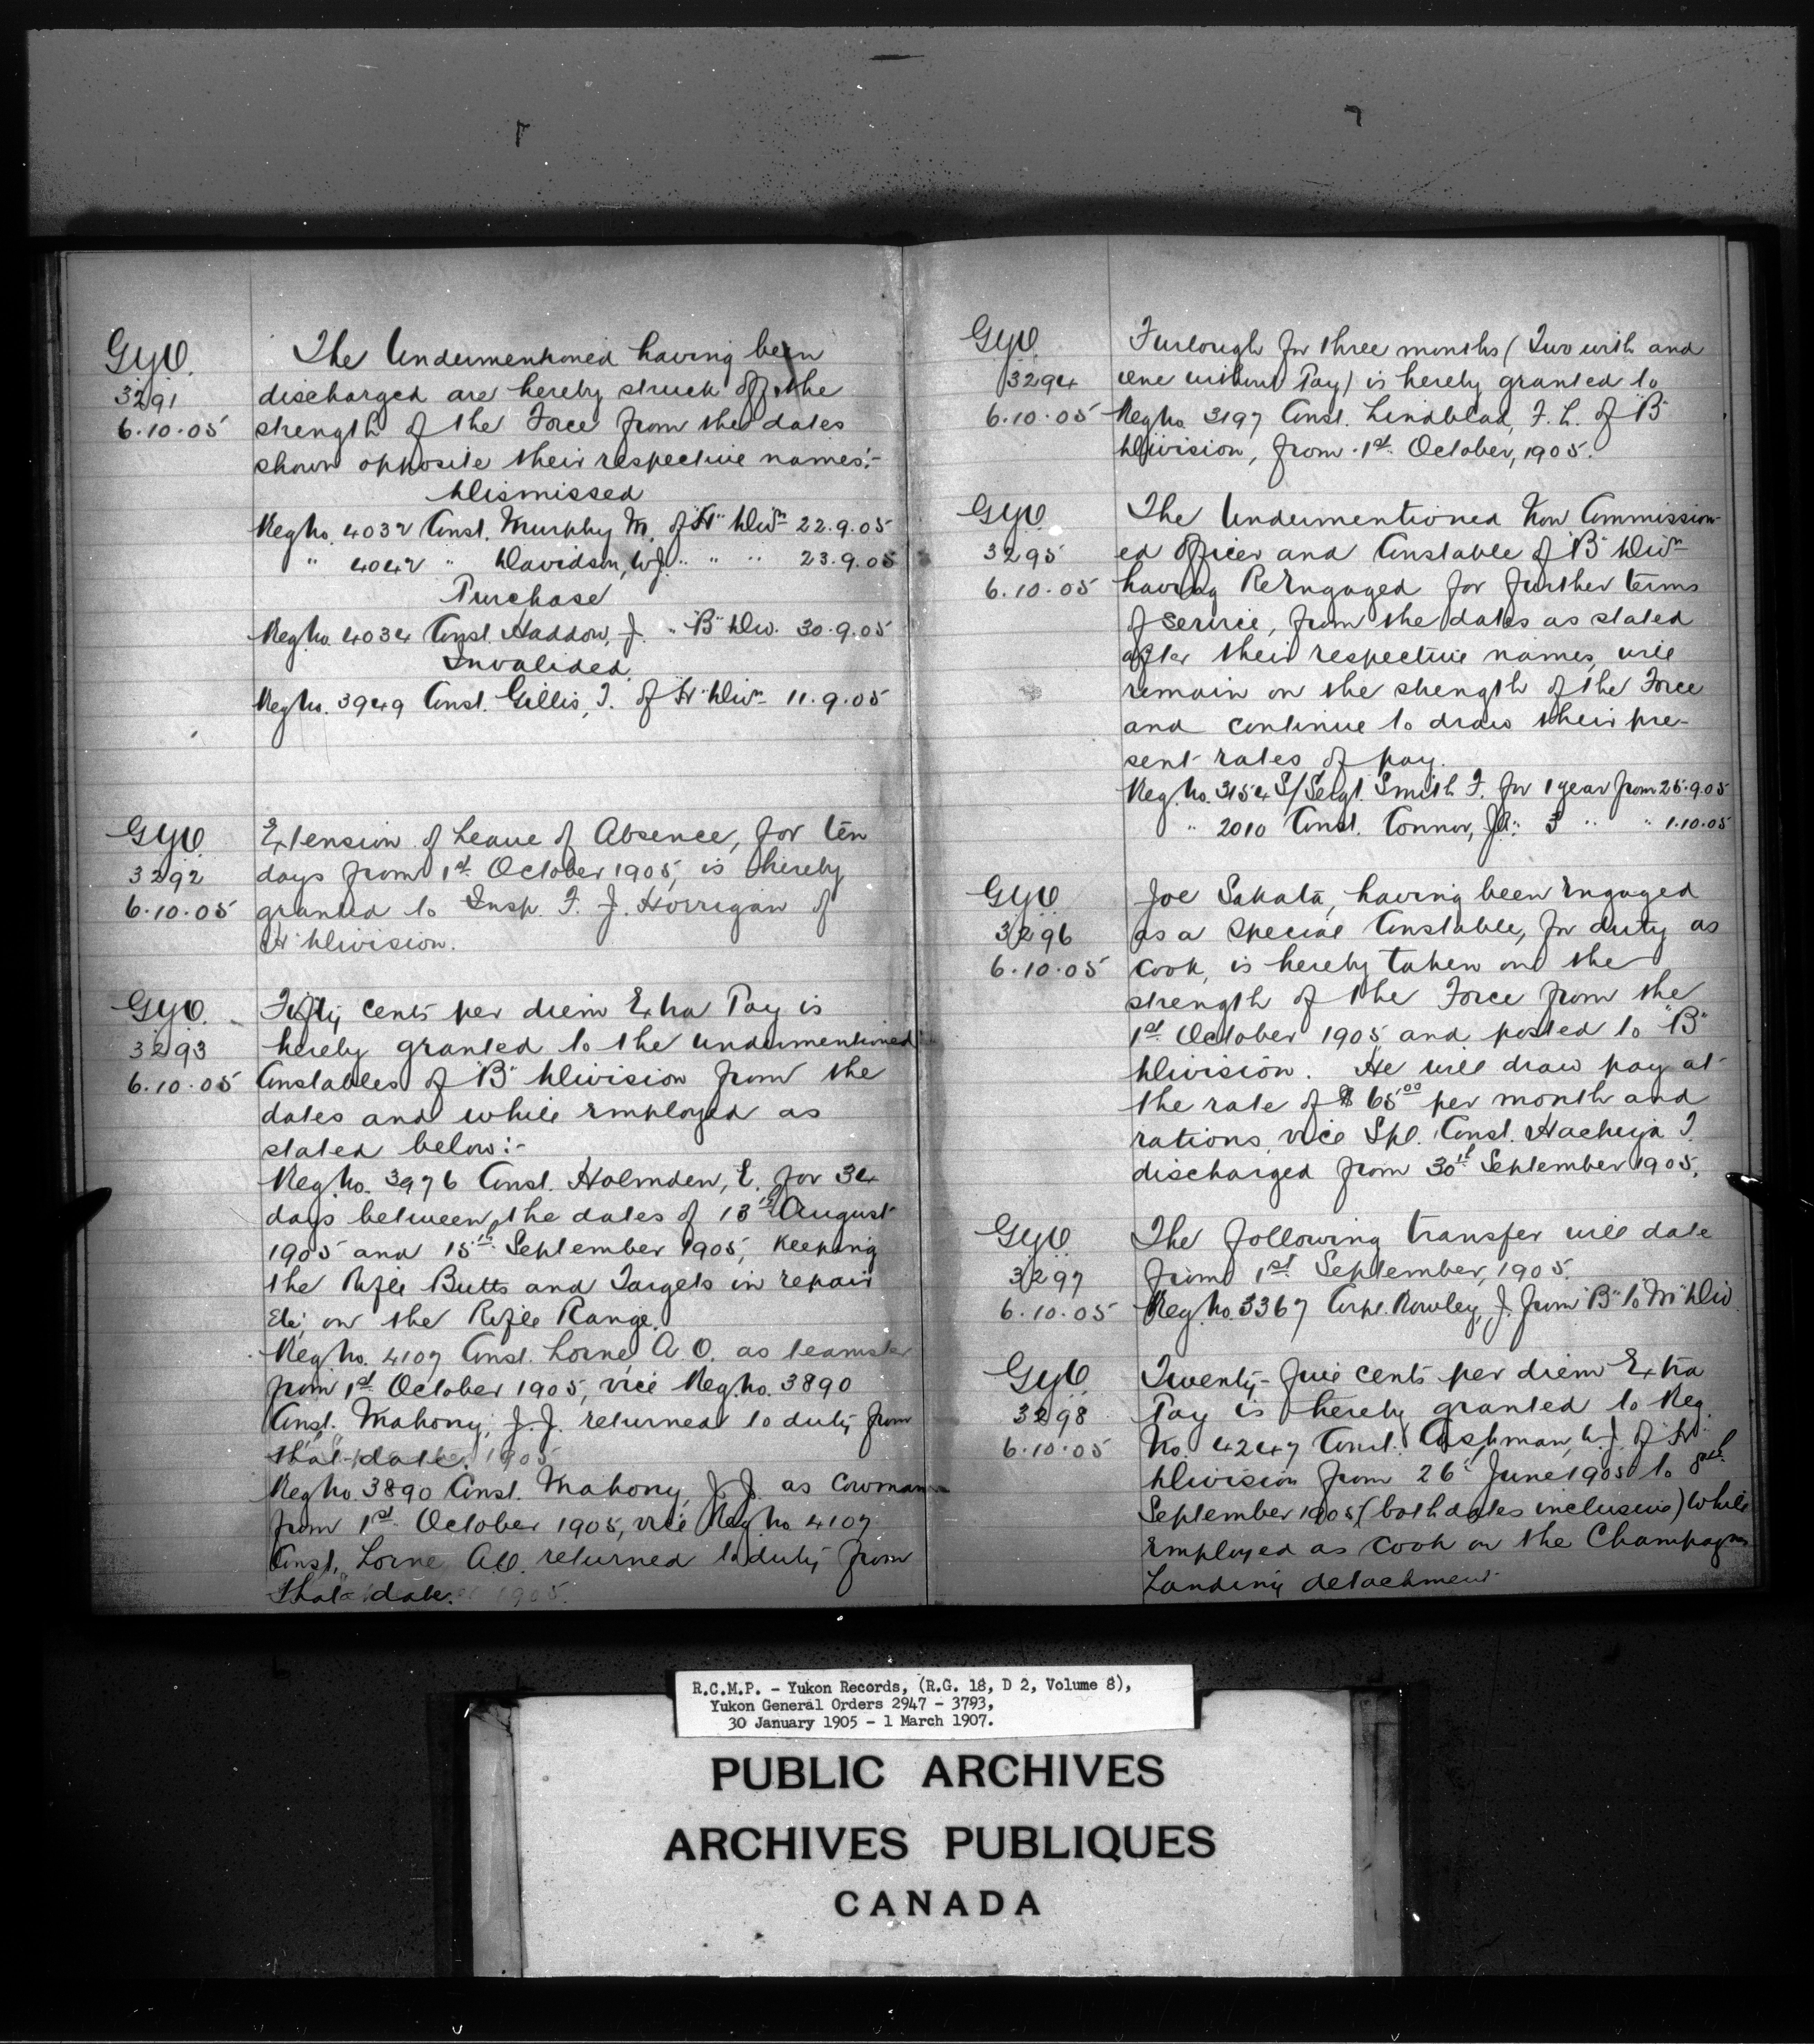 G.Y.O.
3291
6.10.05
The Undermentioned having been
discharged are hereby struck off the
strength of the Force from the dates
shown opposite their respective names:-
Dismissed
Reg No. 4032 Const. Murphy M. of "H" Divn 22.9.05
" 4042 " Davidson, W.J. " " " 23.9.05
Purchase
Reg No. 4034 Const. Haddow, J. " "B" Div. 30.9.05
Invalided
Reg No. 3949 Const. Gillis, J. of "H" Divn 11.9.05
G.Y.O.
3292
6.10.05
Extension of Leave of Absence, for ten
days from 1st October 1905, is hereby
granted to Insp. F. J. Horrigan of
"H" Division.
G.Y.O.
3293
6.10.05
Fifty cents per diem Extra Pay is
hereby granted to the undermentioned
Constables of "B" Division from the
dates and while employed as
stated below:-
Reg. No. 3976 Const. Holmden, E. for 34
days between the dates of 13th August
1905 and 15th September 1905, Keeping
the Rifle Butts and Targets in repair
Etc. on the Rifle Range.
Reg No. 4107 Const. Lorne A.O. as teamster
from 1st October 1905, vice Reg. No. 3890
Const. Mahony, J.J. returned to duty from
that date. 1905
Reg No. 3890 Const. Mahony, J.J. as Cowman
from 1st October 1905, vice Reg No 4107
Const. Lorne A.O. returned to duty from
that date. 1905.
G.Y.O.
3294
6.10.05
Furlough for three months (Two with and
one without Pay) is hereby granted to
Reg No. 3197 Const. Lindblad, F. L. of "B"
Division, from 1st October, 1905.
G.Y.O.
3295
6.10.05
The Undermentioned Non Commission-
ed officer and Constable of "B" Divn
having ReEngaged for further terms
of service, from the dates as stated
after their respective names, will
remain on the strength of the Force
and continue to draw their pre-
sent rates of pay.
Reg. No. 3154 S/Sergt. Smith F. for 1 year from 25.9.05
" 2010 Const. Connor, J.A. " 3 " " 1.10.05
G.Y.O.
3296
6.10.05
Joe Sakata, having been Engaged
as a Special Constable, for duty as
cook, is hereby taken on the
strength of the Force from the
1st October 1905 and posted to "B"
Division. He will draw pay at
the rate of $ 65.00 per month and
rations, vice Spl. Const. Hacheya J.
discharged from 30th September 1905.
G.Y.O.
3297
6.10.05
The following transfer will date
from 1st September, 1905.
Reg. No. 3367 Corpl. Rowley, J. from "B" to "M" Div.
G.Y.O.
3298
6.10.05
Twenty-five cents per diem Extra
Pay is hereby granted to Reg.
No. 4247 Const. Cashman, W.J. of "H"
Division from 26th June 1905 to
September 1905 (both dates inclusive) while
employed as cook on the Champagne
Landing detachment
R.C.M.P. - Yukon Records, (R.G. 18, D 2, Volume 8),
Yukon General Orders 2947 - 3793,
30 January 1905 - 1 March 1907.
PUBLIC ARCHIVES
ARCHIVES PUBLIQUES
CANADA